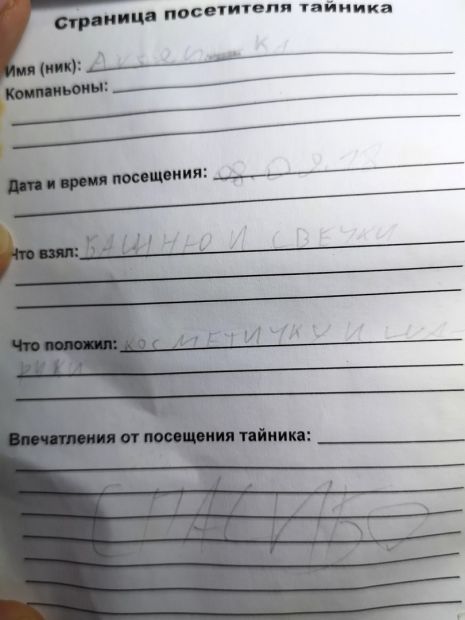 Страница посетителя тайника
Имя (ник):
Компаньоны:
Дата и время посещения: 08.09.18
Что взял: БАШНЮ И СВЕЧКИ
Что положил: КОСМЕТИЧКУ И ША-
РИКИ
Впечатления от посещения тайника:
СПАСИБО